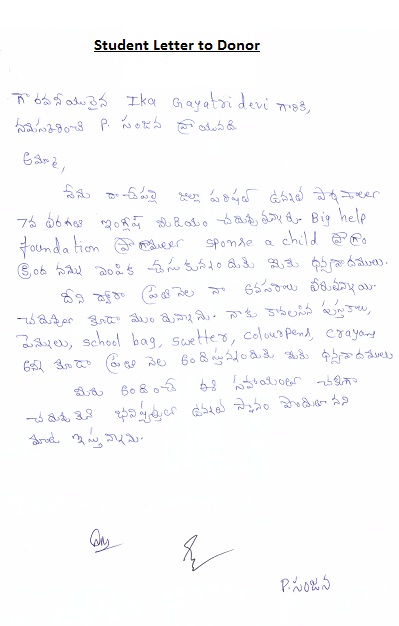 Student Letter to Donor
గౌరవనీయురైన Ika Gayatri devi గారికి,
నమస్కరించి P. సంజన వ్రాయునది
అమ్మా,
నేను రాచేపల్లి జిల్లా పరిషత్ ఉన్నత పాఠశాలలో
7వ తరగతి ఇంగ్లీష్ మీడియం చదువుతున్నాను. Big help
foundation ప్రోగ్రాములో sponse a child ప్రోగ్రాం
క్రింద నన్ను ఎంపిక చేసుకున్నందుకు మీకు ధన్యవాదములు.
దీని ద్వారా ప్రతి నెల నా అవసరాలు తీరుతున్నాయి.
చదువులో కూడా ముందున్నాను. నాకు కావలసిన పుస్తకాలు,
పెన్నులు, school bag, swetter, colourpens, crayons
ఇవన్ని కూడా ప్రతి నెల అందిస్తున్నందుకు మీకు ధన్యవాదములు
మీరు అందించే ఈ సహాయంతో చక్కగా
చదువుకుని భవిష్యత్తులో ఉన్నత స్థానం పొందుతానని
మాట ఇస్తున్నాను.
P. సంజన